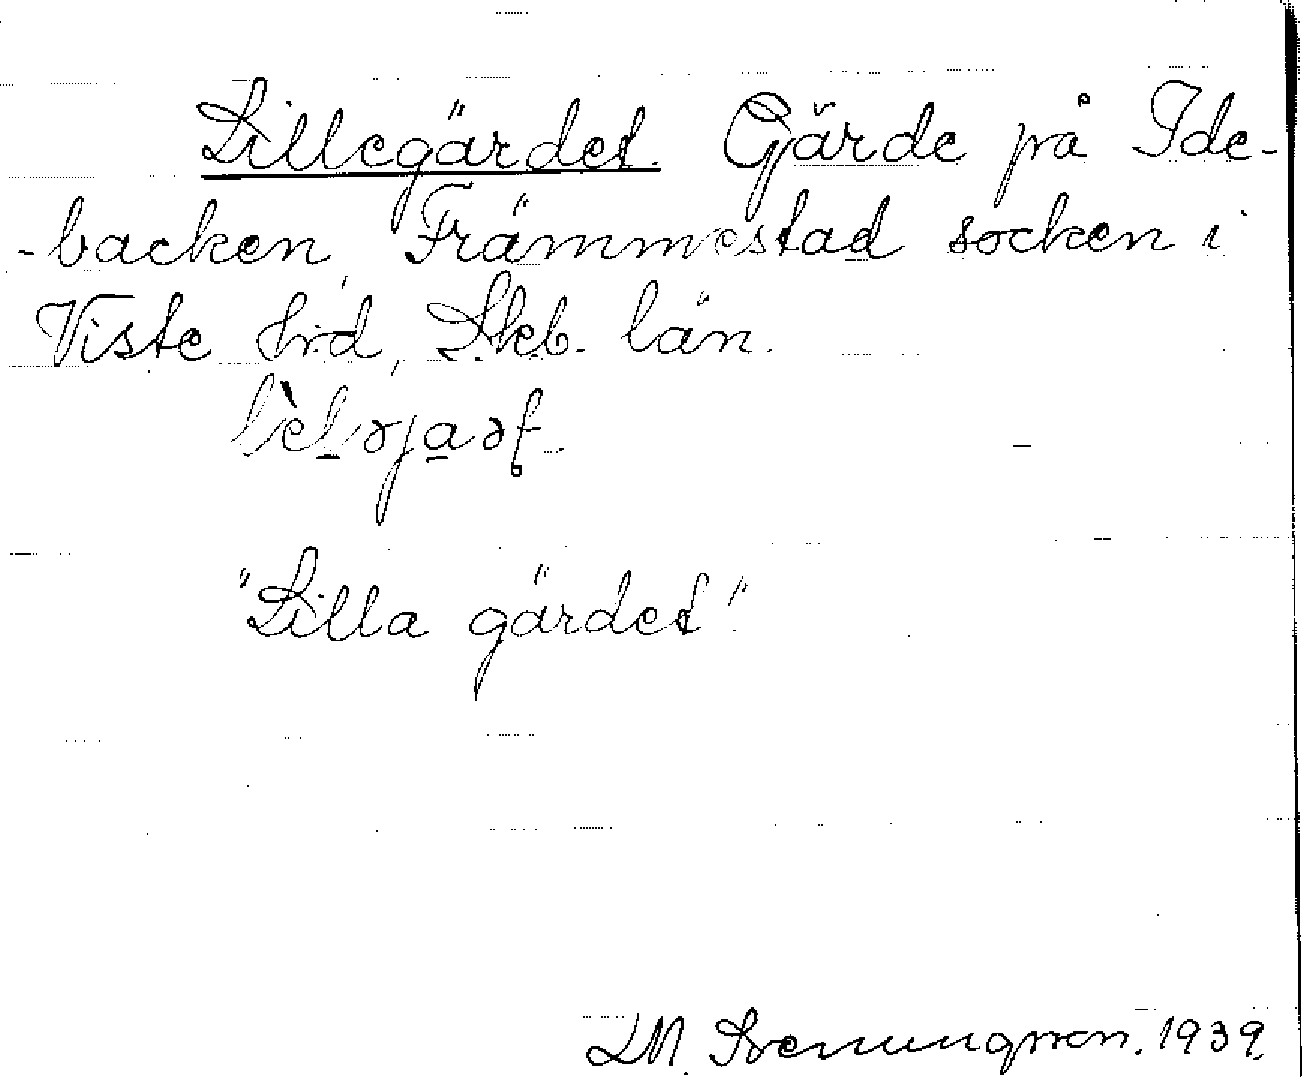 Lillegärdet. Gärde på Ide-
-backen, Främmestad socken i
Viste hrd, Skb. län.
"Lilla gärdet"
L M. Svenungsson. 1939